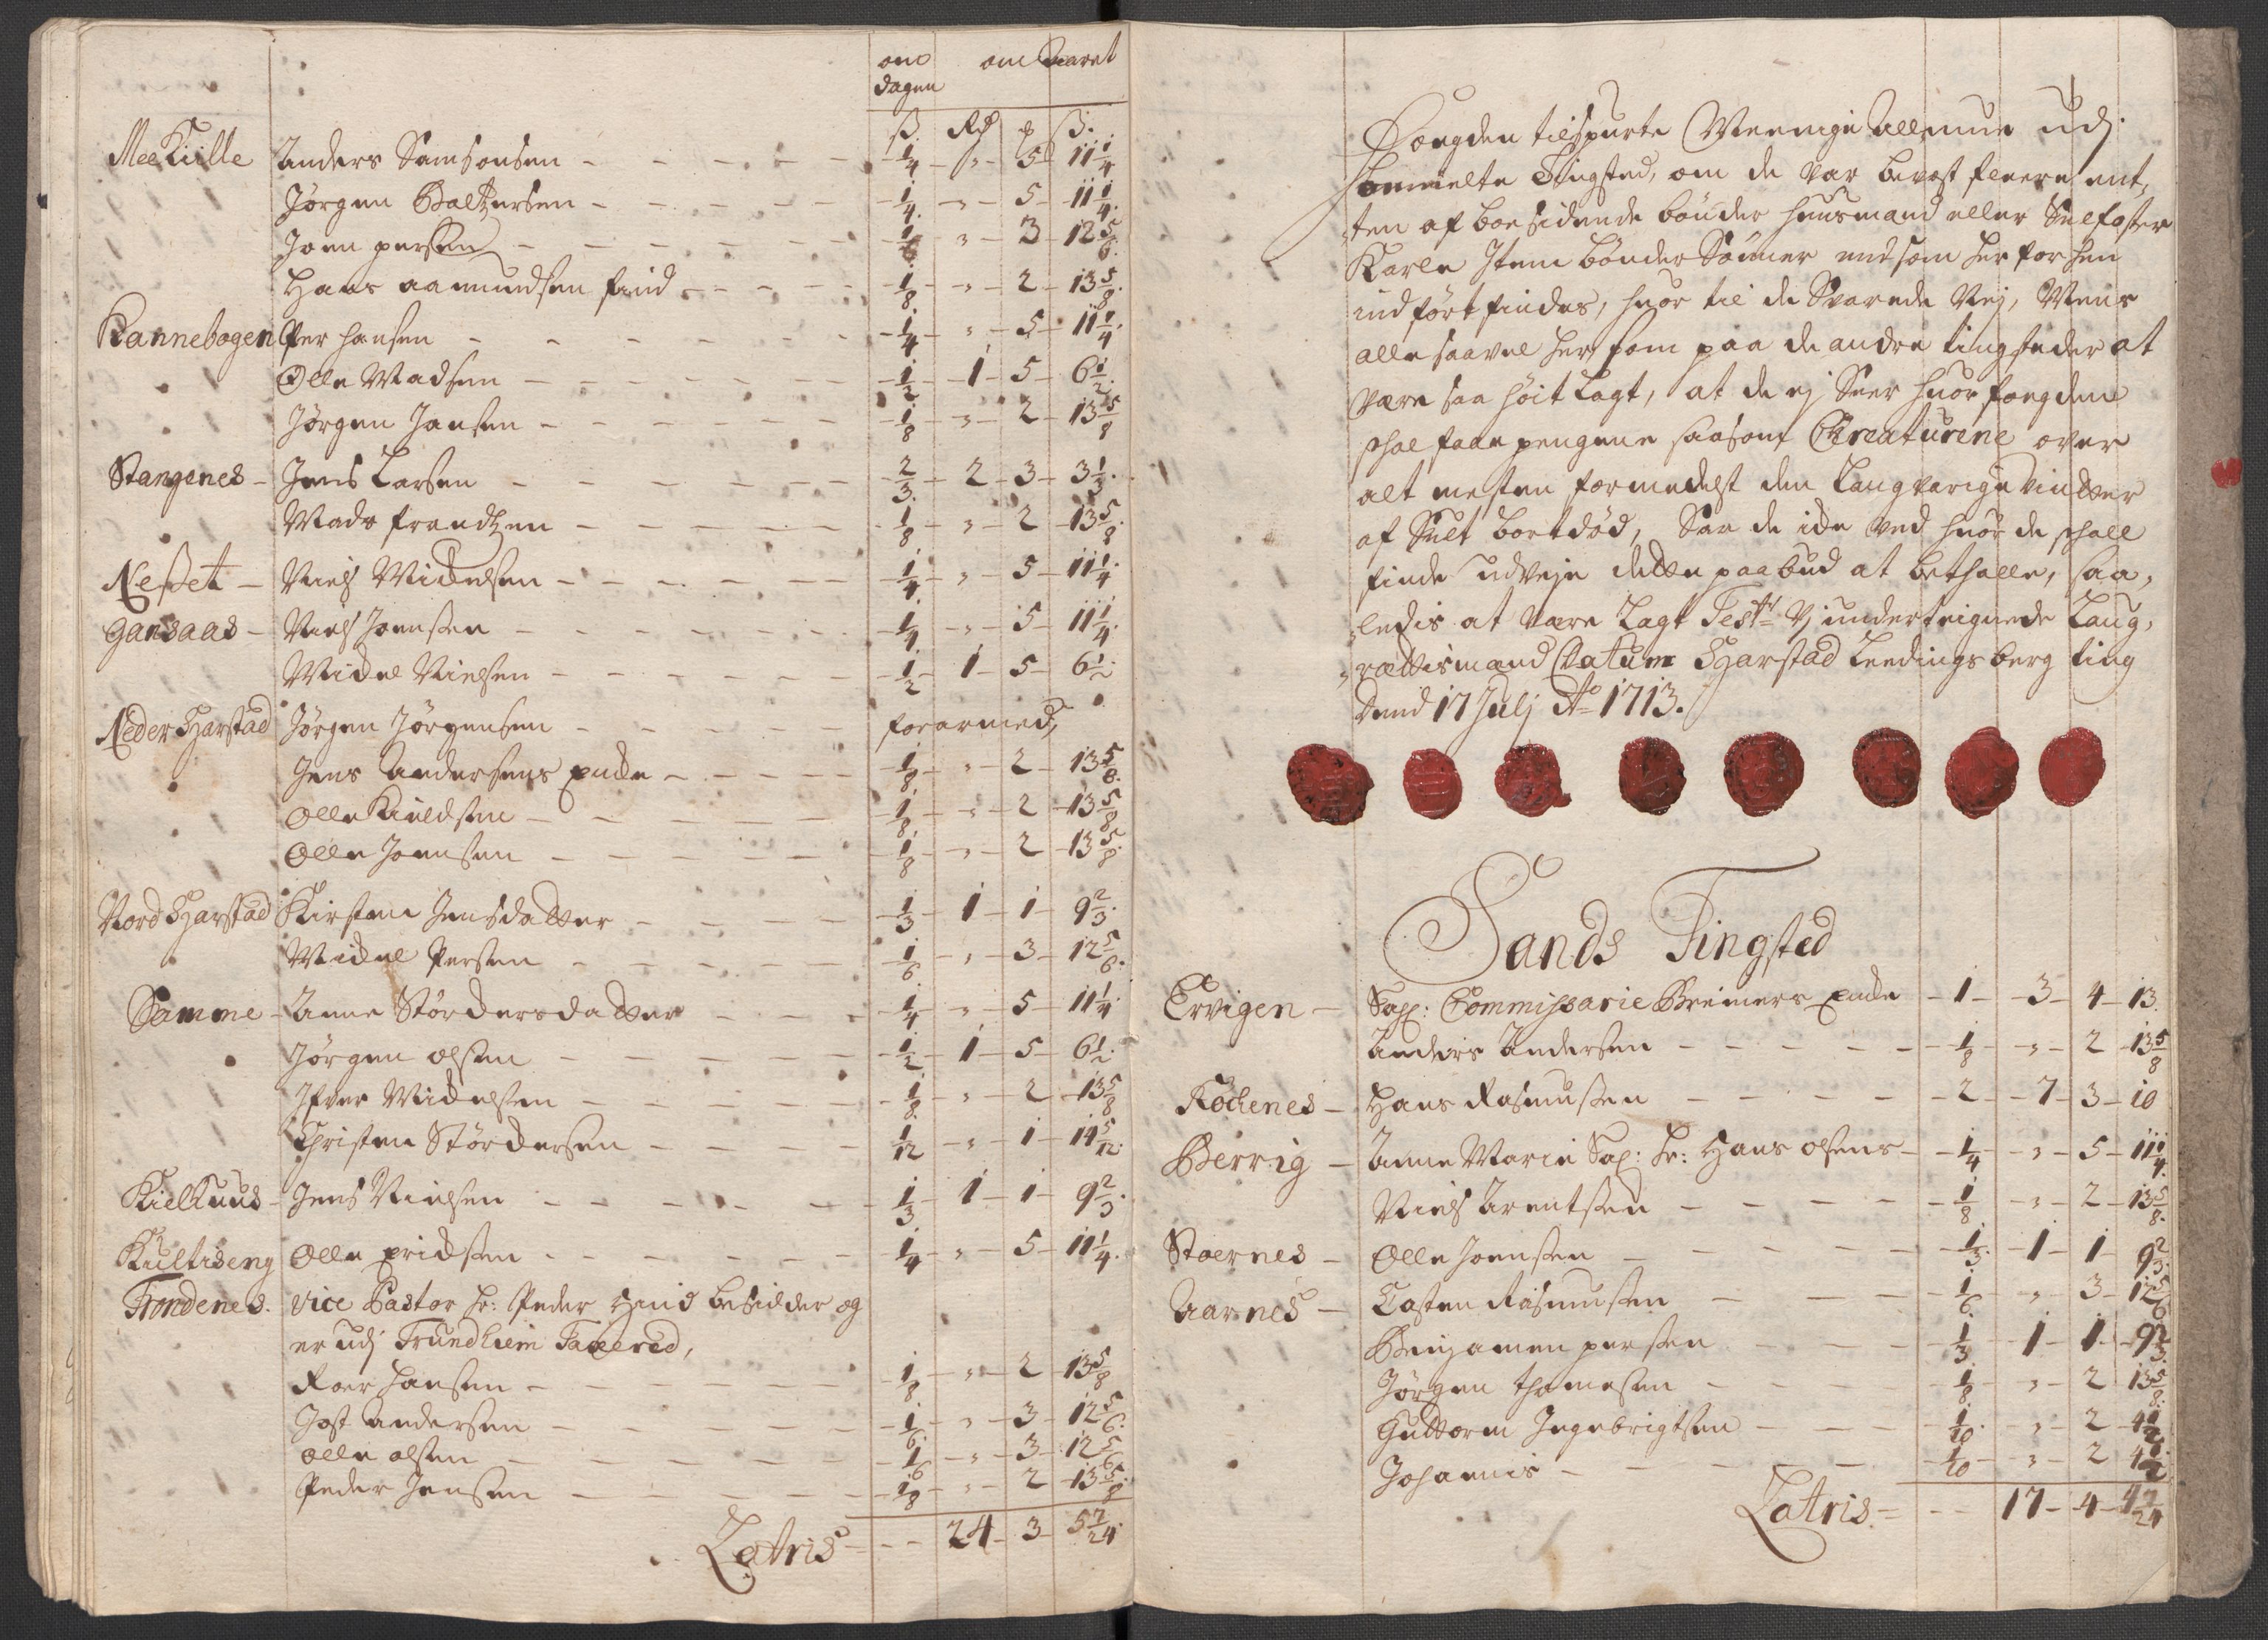 om dagen om Aaret
ß. Rd ₰ ß.
MeeKiille Anders Samsonsen - 1/4 - " - 5 - 11 1/4
Jørgen Baltzersen - 1/4 - " - 5 - 11 1/4
Joen persen - 1/6 - " - 3 - 12 5/6
Hans aamundsen find - 1/8 - " - 2 - 13 5/8
Kannebogen Per hansen - 1/4 - " - 5 - 11 1/4
Olle Madsen - 1/2 - 1 - 5 - 6 1/2
Jørgen Jansen - 1/8 - " - 2 - 13 5/8
Stangenes - Jens Larsen - 2/3 - 2 - 3 - 3 1/3
Mads frandtzen - 1/8 - " - 2 - 13 5/8
Neßet - Niels Michelsen - 1/4 - " - 5 - 11 1/4
Gansaas - Niels Joenßen - 1/4 - " - 5 - 11 1/4
Michel Nielsen - 1/2 - 1 - 5 - 6 1/2
Neder Harstad Jørgen Jørgensen - forarmed,
Jens Andersens Encke - 1/8 - " - 2 - 13 5/8
Olle Kieldsen - 1/8 - " - 2 - 13 5/8
Olle Joensen - 1/8 - " - 2 - 13 5/8
Nord Harstad Kirsten Jensdatter - 1/3 - 1 - 1 - 9 2/3
Michel Persen - 1/6 - " - 3 - 12 5/6
Samme - Anne Størchersdatter - 1/4 - " - 5 - 11 1/4
Jørgen olsen - 1/2 - 1 - 5 - 6 1/2
Ifver Michelsen - 1/8 - " - 2 - 13 5/8
Christen Størchersen - 1/12 - " - 1 - 14 5/12
Kielhuus - Jens Nielsen - 1/3 - 1 - 1 - 9 2/3
Kultiseng Olle Erichsen - 1/4 - " - 5 - 11 1/4
Trondenes. vice Pastor hr: Peder Hind besidder og
er udj Trundhiem Taxered,
Roer hansen - 1/8 - " - 2 13 5/8
Jost Andersen - 1/6 - " - 3 - 12 5/6
olle olsen - 1/6 - " - 3 - 12 5/6
Peder Jensen - 1/8 - " - 2 - 13 5/8
Latris - 24 - 3 - 5 7/24
Fougden tilspurte Meenige Allmue udj
bemelte Tingsted, om de var bevost fleere ent,
ten af boesidende bønder huusmand eller Sælfoster
Karle Item bønder Sønner end som her for hen
indført findes, huor til de Svarede Nej, Mens
alle saavel her som paa de andre tingsteder at
være saa høit Lagt, at de ej Seer huor fougden
schal faae pengene saasom Creaturene over
alt mesten formedelst den Langvarige vintter
af Sult bortdød, Saa de icke ved huor de schall
finde udveje dette paabud at bethalle, saa,
ledis at være Lagt Test: Vj underteignede Laug,
rettismænd Datum Harstad Leedingsberg ting
Dend 17 Julj Ao 1713.
Sands Tingsted
Ervigen - Sal: Commißarie Breiners Encke - 1 - 3 - 4 - 13
Anders Andersen - 1/8 - " - 2 - 13 5/8
Køchenes - Hans Rasmußen - 2 - 7 - 3 - 10
Berrig - Anne Marie Sal: hr: Hans olsens - 1/4 - " - 5 - 11 1/4
Niels Arentsen - 1/8 - " - 2 - 13 5/8
Stoernes - Olle Joensen - 1/3 - 1 - 1 - 9 2/3
Aarnes - Casten Rasmussen - 1/6 - " - 3 - 12 5/6
Benjamen persen - 1/3 - 1 - 1 - 9 2/3
Jørgen thomesen - 1/8 - " - 2 13 5/8
Guttorm Ingebrigtsen - 1/10 - " - 2 - 4 1/2
Johannis - 1/10 - " - 2 4 1/2
Latris - 17 - 4 - 4 7/24